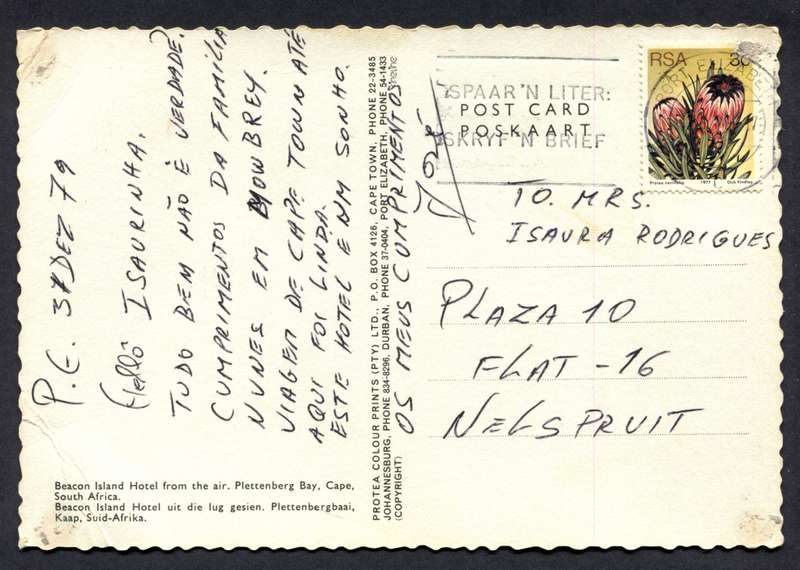 P.E. 31 DEZ 79
Hello ISAURINHA.
TUDO BEM NÃO È VERDADE.
CUMPRIMENTOS DA FAMILIA
NUNES EM MOWBREY.
VIAGEM DE CAPE TOWN ATÉ
AQUI FOI LINDA.
ESTE HOTEL E NM SONHO.
OS MEUS CUMPRIMENTOS
José
Beacon Island Hotel from the air. Plettenberg Bay, Cape,
South Africa.
Beacon Island Hotel uit die lug gesien. Plettenbergbaai,
Kaap, Suid-Afrika.
PROTEA COLOUR PRINTS (PTY) LTD., P.O. BOX 4126, CAPE TOWN, PHONE 22-3485
JOHANNESBURG, PHONE 834-8296, DURBAN, PHONE 37-0404, PORT ELIZABETH, PHONE 54-1433
(COPYRIGHT)
SPAAR 'N LITER:
POST CARD
POSKAART
SKRYF 'N BRIEF
RSA
PORT ELIZABETH
1977
Dick Findlay
TO. MRS.
ISAURA RODRIGUES
PLAZA 10
FLAT - 16
NELSPRUIT